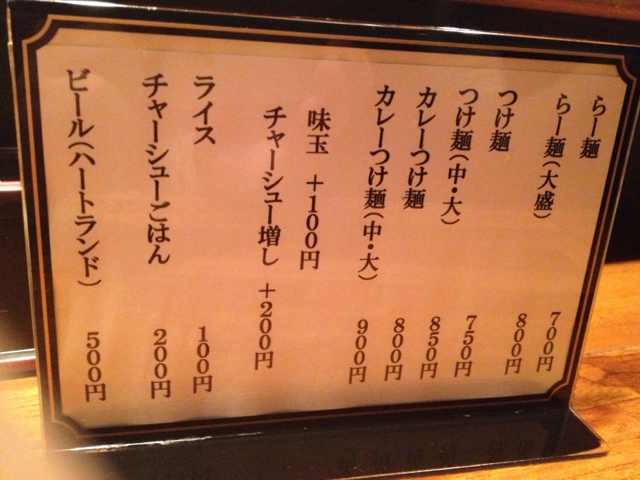 らー麺 700円
らー麺(大盛) 800円
つけ麺 750円
つけ麺(中・大) 850円
カレーつけ麺 800円
カレーつけ麺(中・大) 900円
味玉 +100円
チャーシュー増し +200円
ライス 100円
チャーシューごはん 200円
ビール(ハートランド) 500円